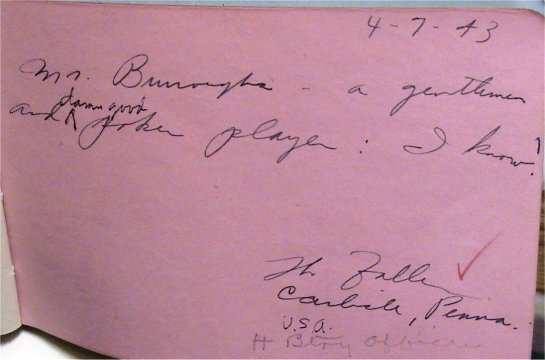 4-7-43
Mr. Burroughs - a gentlemen
damn good
and poker player: I know!
Carlisle, Penna.
U.S.A.
H Btry Officer